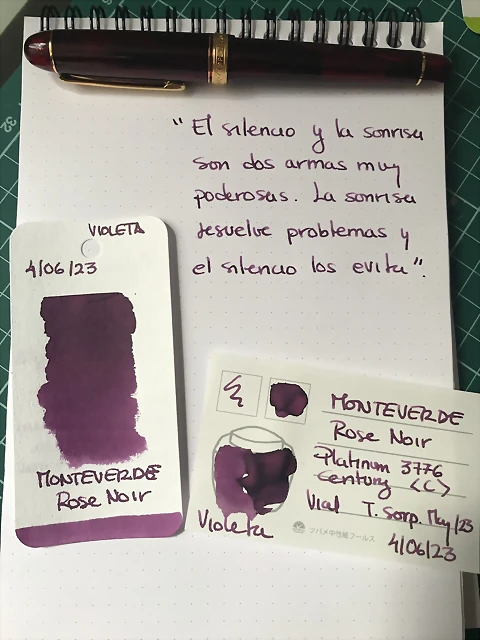 "El silencio y la sonrisa
son dos armas muy
poderosas. La sonrisa
resuelve problemas y
el silencio los evita".
VIOLETA
4/06/23
MONTEVERDE
Rose Noir
MONTEVERDE
Rose Noir
Platinum 3776
Century <C>
Vial T. Sorp. May/23
4/06/23
Violeta
ツバメ中性紙フールス